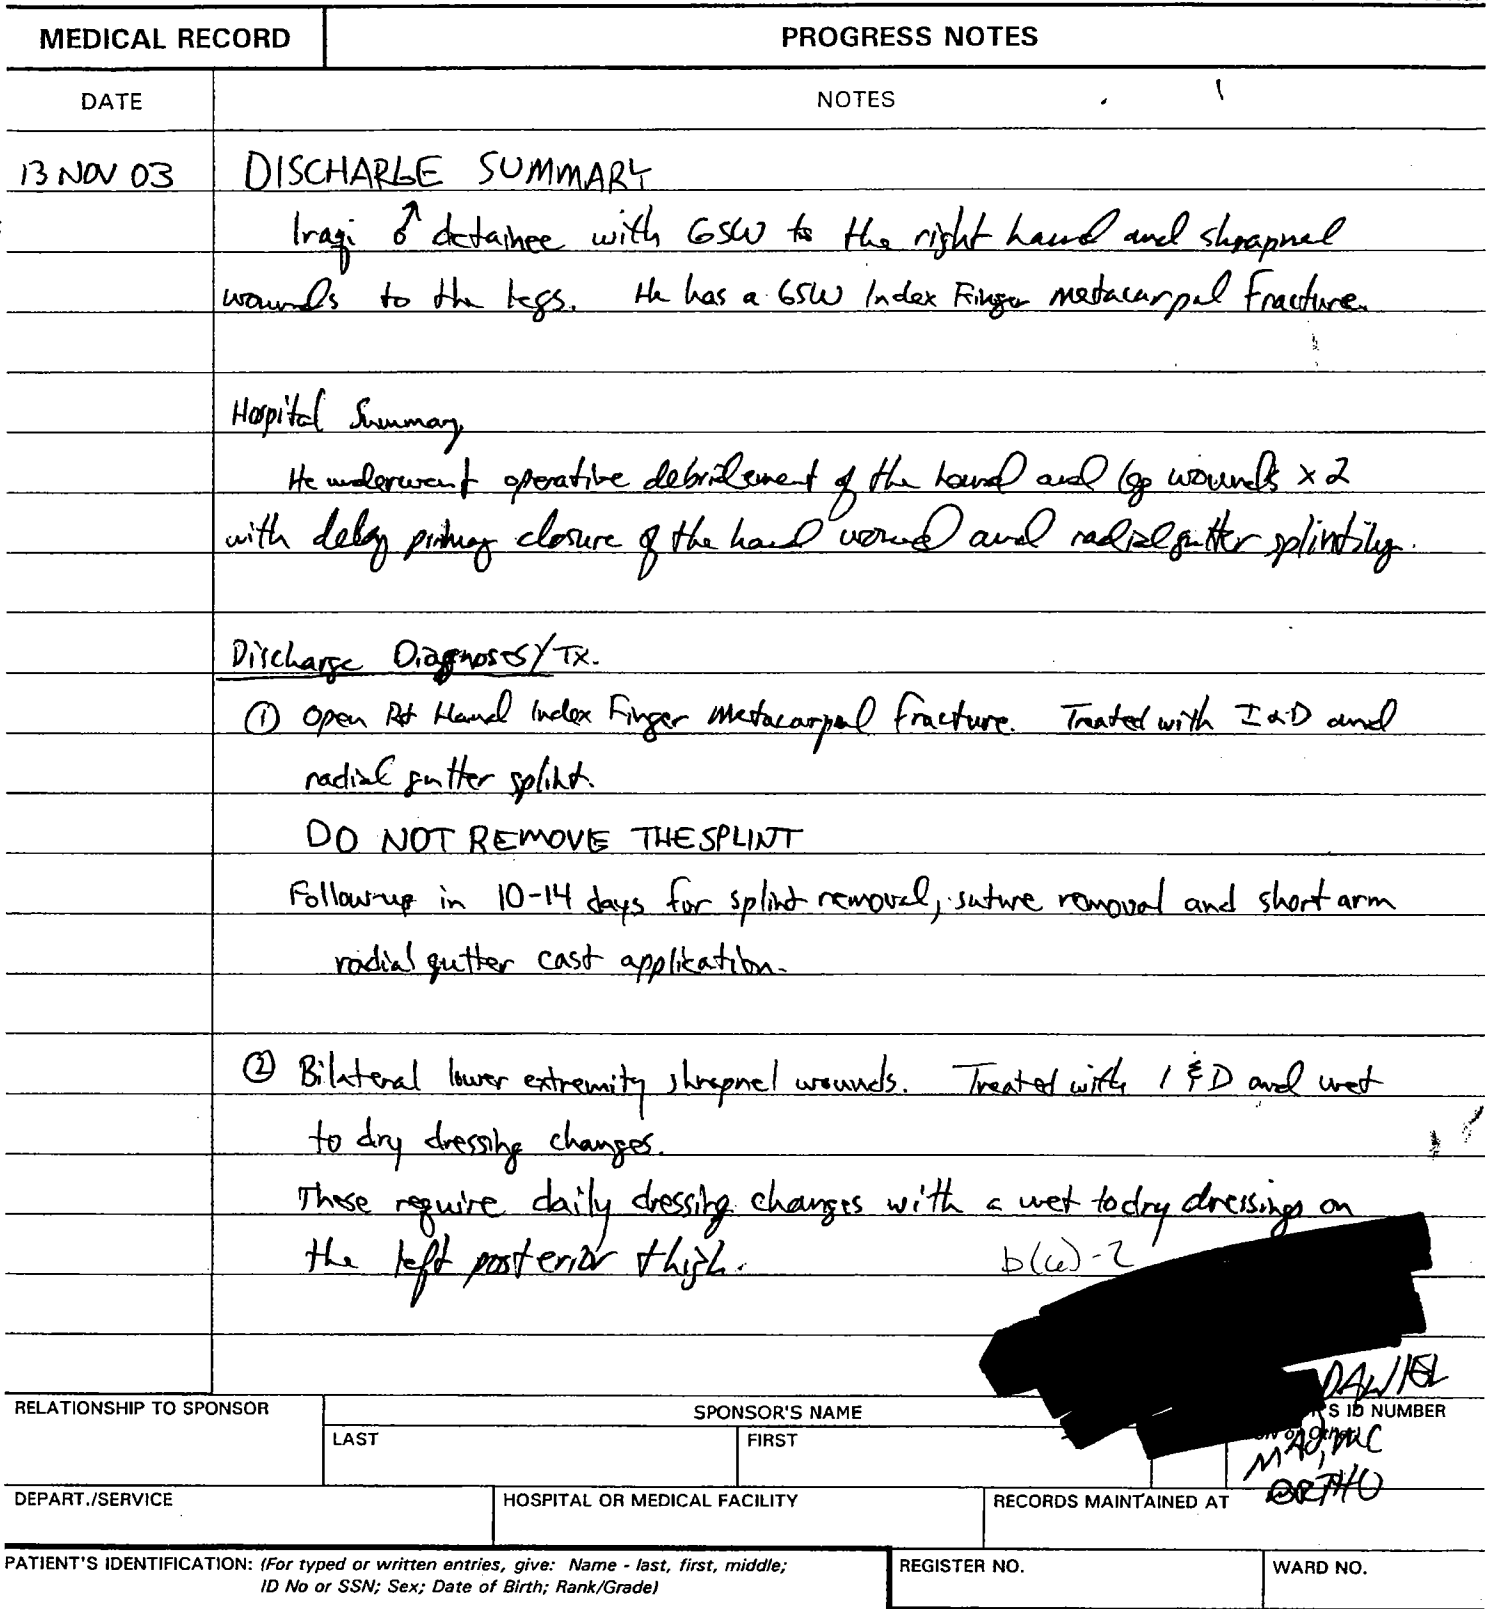 MEDICAL RECORD
PROGRESS NOTES
DATE
NOTES
13 NOV 03
DISCHARGE SUMMARY
Iraqi ♂ detainee with GSW to the right hand and shrapnel
wounds to the legs. He has a GSW Index Finger metacarpal Fracture.
Hospital Summary
He underwent operative debridement of the hand and leg wounds x 2
with delay primary closure of the hand wound and radial gutter splinting.
Discharge Diagnoses/Tx.
① Open Rt Hand Index Finger Metacarpal fracture. Treated with I&D and
radial gutter splint.
DO NOT REMOVE THE SPLINT
Follow-up in 10-14 days for splint removal, suture removal and short arm
radial gutter cast application.
② Bilateral lower extremity shrapnel wounds. Treated with I&D and wet
to dry dressing changes.
These require daily dressing changes with a wet to dry dressings on
the left posterior thigh.
b(6)-2
DANIEL
RELATIONSHIP TO SPONSOR
SPONSOR'S NAME
S ID NUMBER
LAST
FIRST
MAJ, MC
ORTHO
DEPART./SERVICE
HOSPITAL OR MEDICAL FACILITY
RECORDS MAINTAINED AT
PATIENT'S IDENTIFICATION: (For typed or written entries, give: Name - last, first, middle;
ID No or SSN; Sex; Date of Birth; Rank/Grade)
REGISTER NO.
WARD NO.